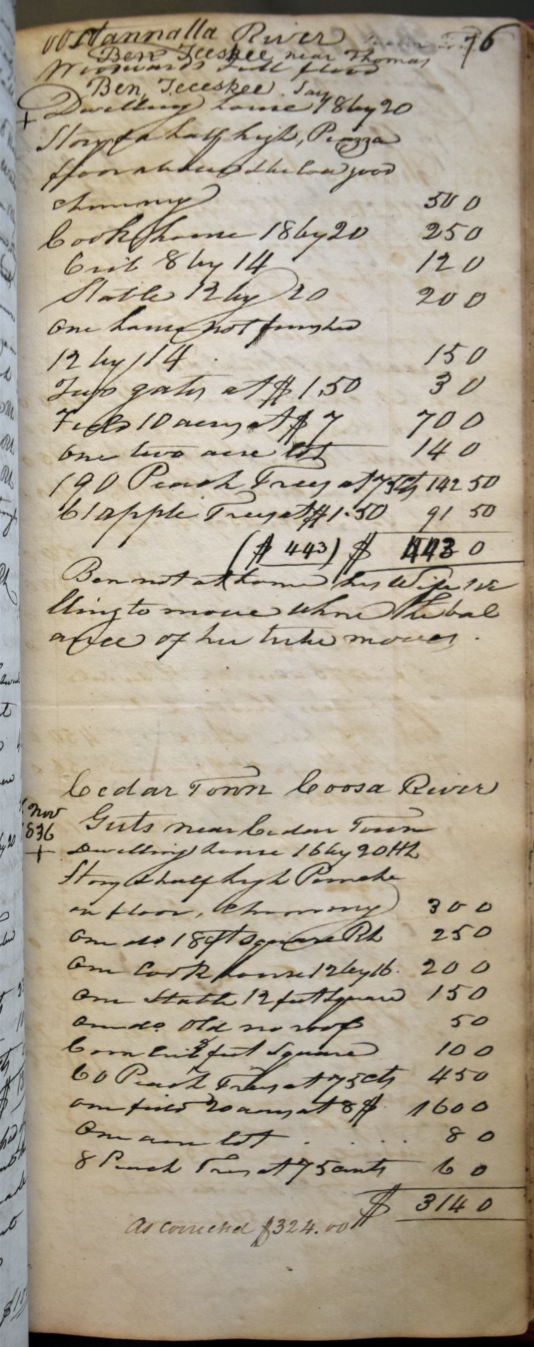 Oostannalla River 76
Ben Teeskee near Thomas
Woodwards
Ben Teceskee Say
+ Dwelling house 18 by 20
Story & a half high, Piazza
floor above good
chimney 50 0
Cook house 18 by 20 25 0
Crib 8 by 14 12 0
Stable 12 by 20 20 0
One house not finished
12 by 14 . 15 0
Two gates at $ 1,50 3 0
Field 10 acres at $ 7 70 0
One two acre lot 14 0
190 Peach Trees at 75cts 142 50
61 apple Trees at $1.50 91 50
($ 443) $ 443 0
Ben not at home his Wife wi
lling to move when the bal
ance of her tribe moves .
Cedar Town Coosa River
Nov Guts near Cedar Town
1836
+ Dwelling house 16 by 20 ft
Story & half high
in floor, chimney 30 0
One do 18 ft square 25 0
One Cook house 12 by 16. 20 0
One Stable 12 feet square 15 0
one do old no roof 5 0
Corn Crib feet square 10 0
60 Peach Trees at 75 cts 45 0
one field 20 acres at 8 $ 160 0
One acre lot . . . . . 8 0
8 Peach Trees at 75 cents 6 0
$ 314 0
As corrected $324.00